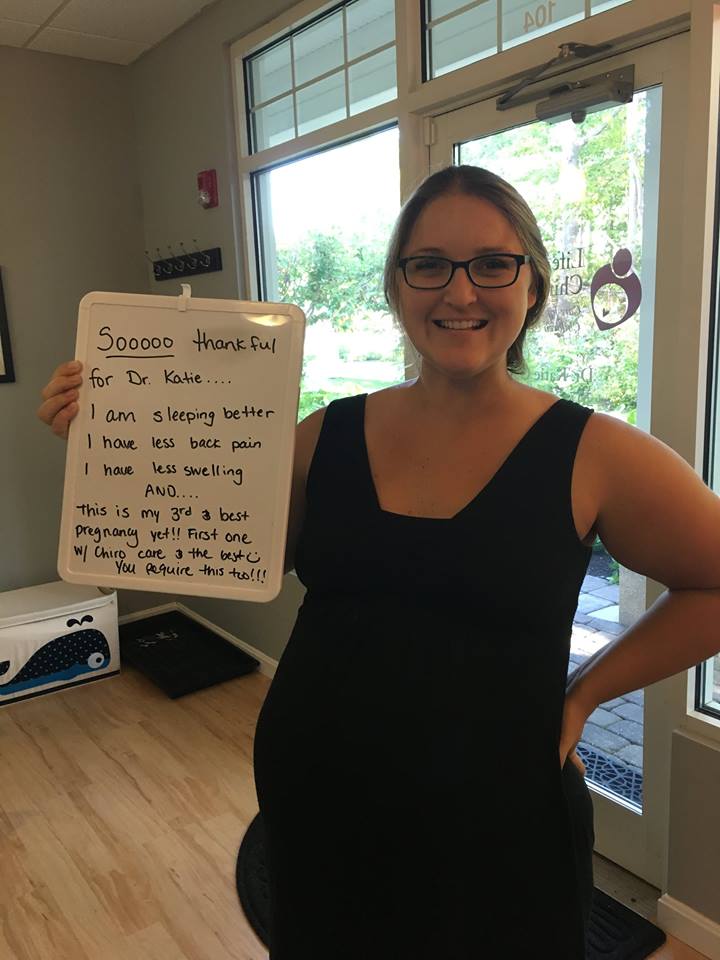 104
Sooooo thankful
for Dr. Katie....
I am sleeping better
I have less back pain
I have less swelling
AND....
this is my 3rd & best
pregnancy yet!! First one
w/ Chiro care & the best
You require this too!!!
Life
Chi
Dr. Katie